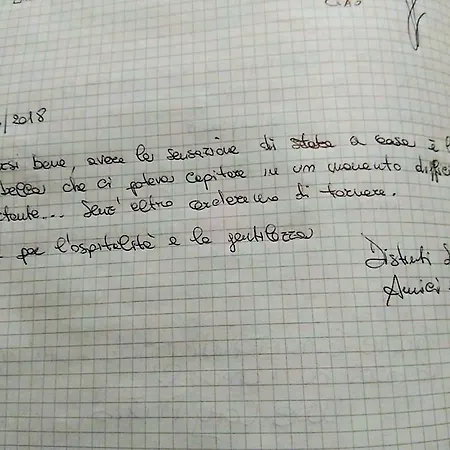 CIAO
/2018
rsi bene, avere la sensazione di stare a casa è l
bella che ci poteva capitare in un momento diffi
tante... Senz'altro cercheremo di tornare.
per l'ospitalità e la gentilezza
Distinti S
Amici